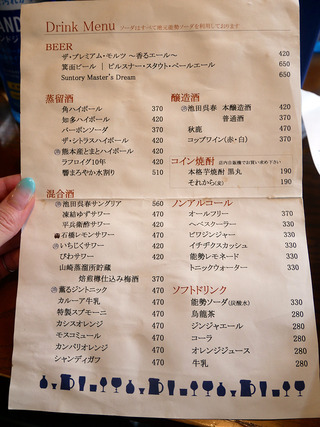 Drink Menu ソーダはすべて地元能勢ソーダを利用しております
BEER
ザ・プレミアム・モルツ 〜香るエール〜 420
箕面ビール | ピルスナー・スタウト・ペールエール 650
Suntory Master's Dream 650
蒸留酒
角ハイボール 370
知多ハイボール 470
バーボンソーダ 370
ザ・シトラスハイボール 470
熊本産とまとハイボール 470
ラフロイグ10年 420
響まろやか水割り 510
醸造酒
池田呉春 本醸造酒 420
普通酒 370
秋鹿 470
コップワイン(赤・白) 370
コイン焼酎 店内自販機でお買い求め下さい
本格芋焼酎 黒丸 190
それから(麦) 190
混合酒
池田呉春サングリア 560
凍結ゆずサワー 470
平兵衛酢サワー 470
石橋レモンサワー 470
いちじくサワー 470
びわサワー 470
山崎蒸溜所貯蔵
焙煎樽仕込み梅酒 370
薫るジントニック 470
カルーア牛乳 470
特製スプモーニ 470
カシスオレンジ 470
モスコミュール 470
カンパリオレンジ 470
シャンディガフ 470
ノンアルコール
オールフリー 370
ヘベスクーラー 330
ビワジンジャー 330
イチヂクスカッシュ 330
能勢レモネード 330
トニックウォーター 330
ソフトドリンク
能勢ソーダ(炭酸水) 330
烏龍茶 280
ジンジャエール 280
コーラ 280
オレンジジュース 280
牛乳 280